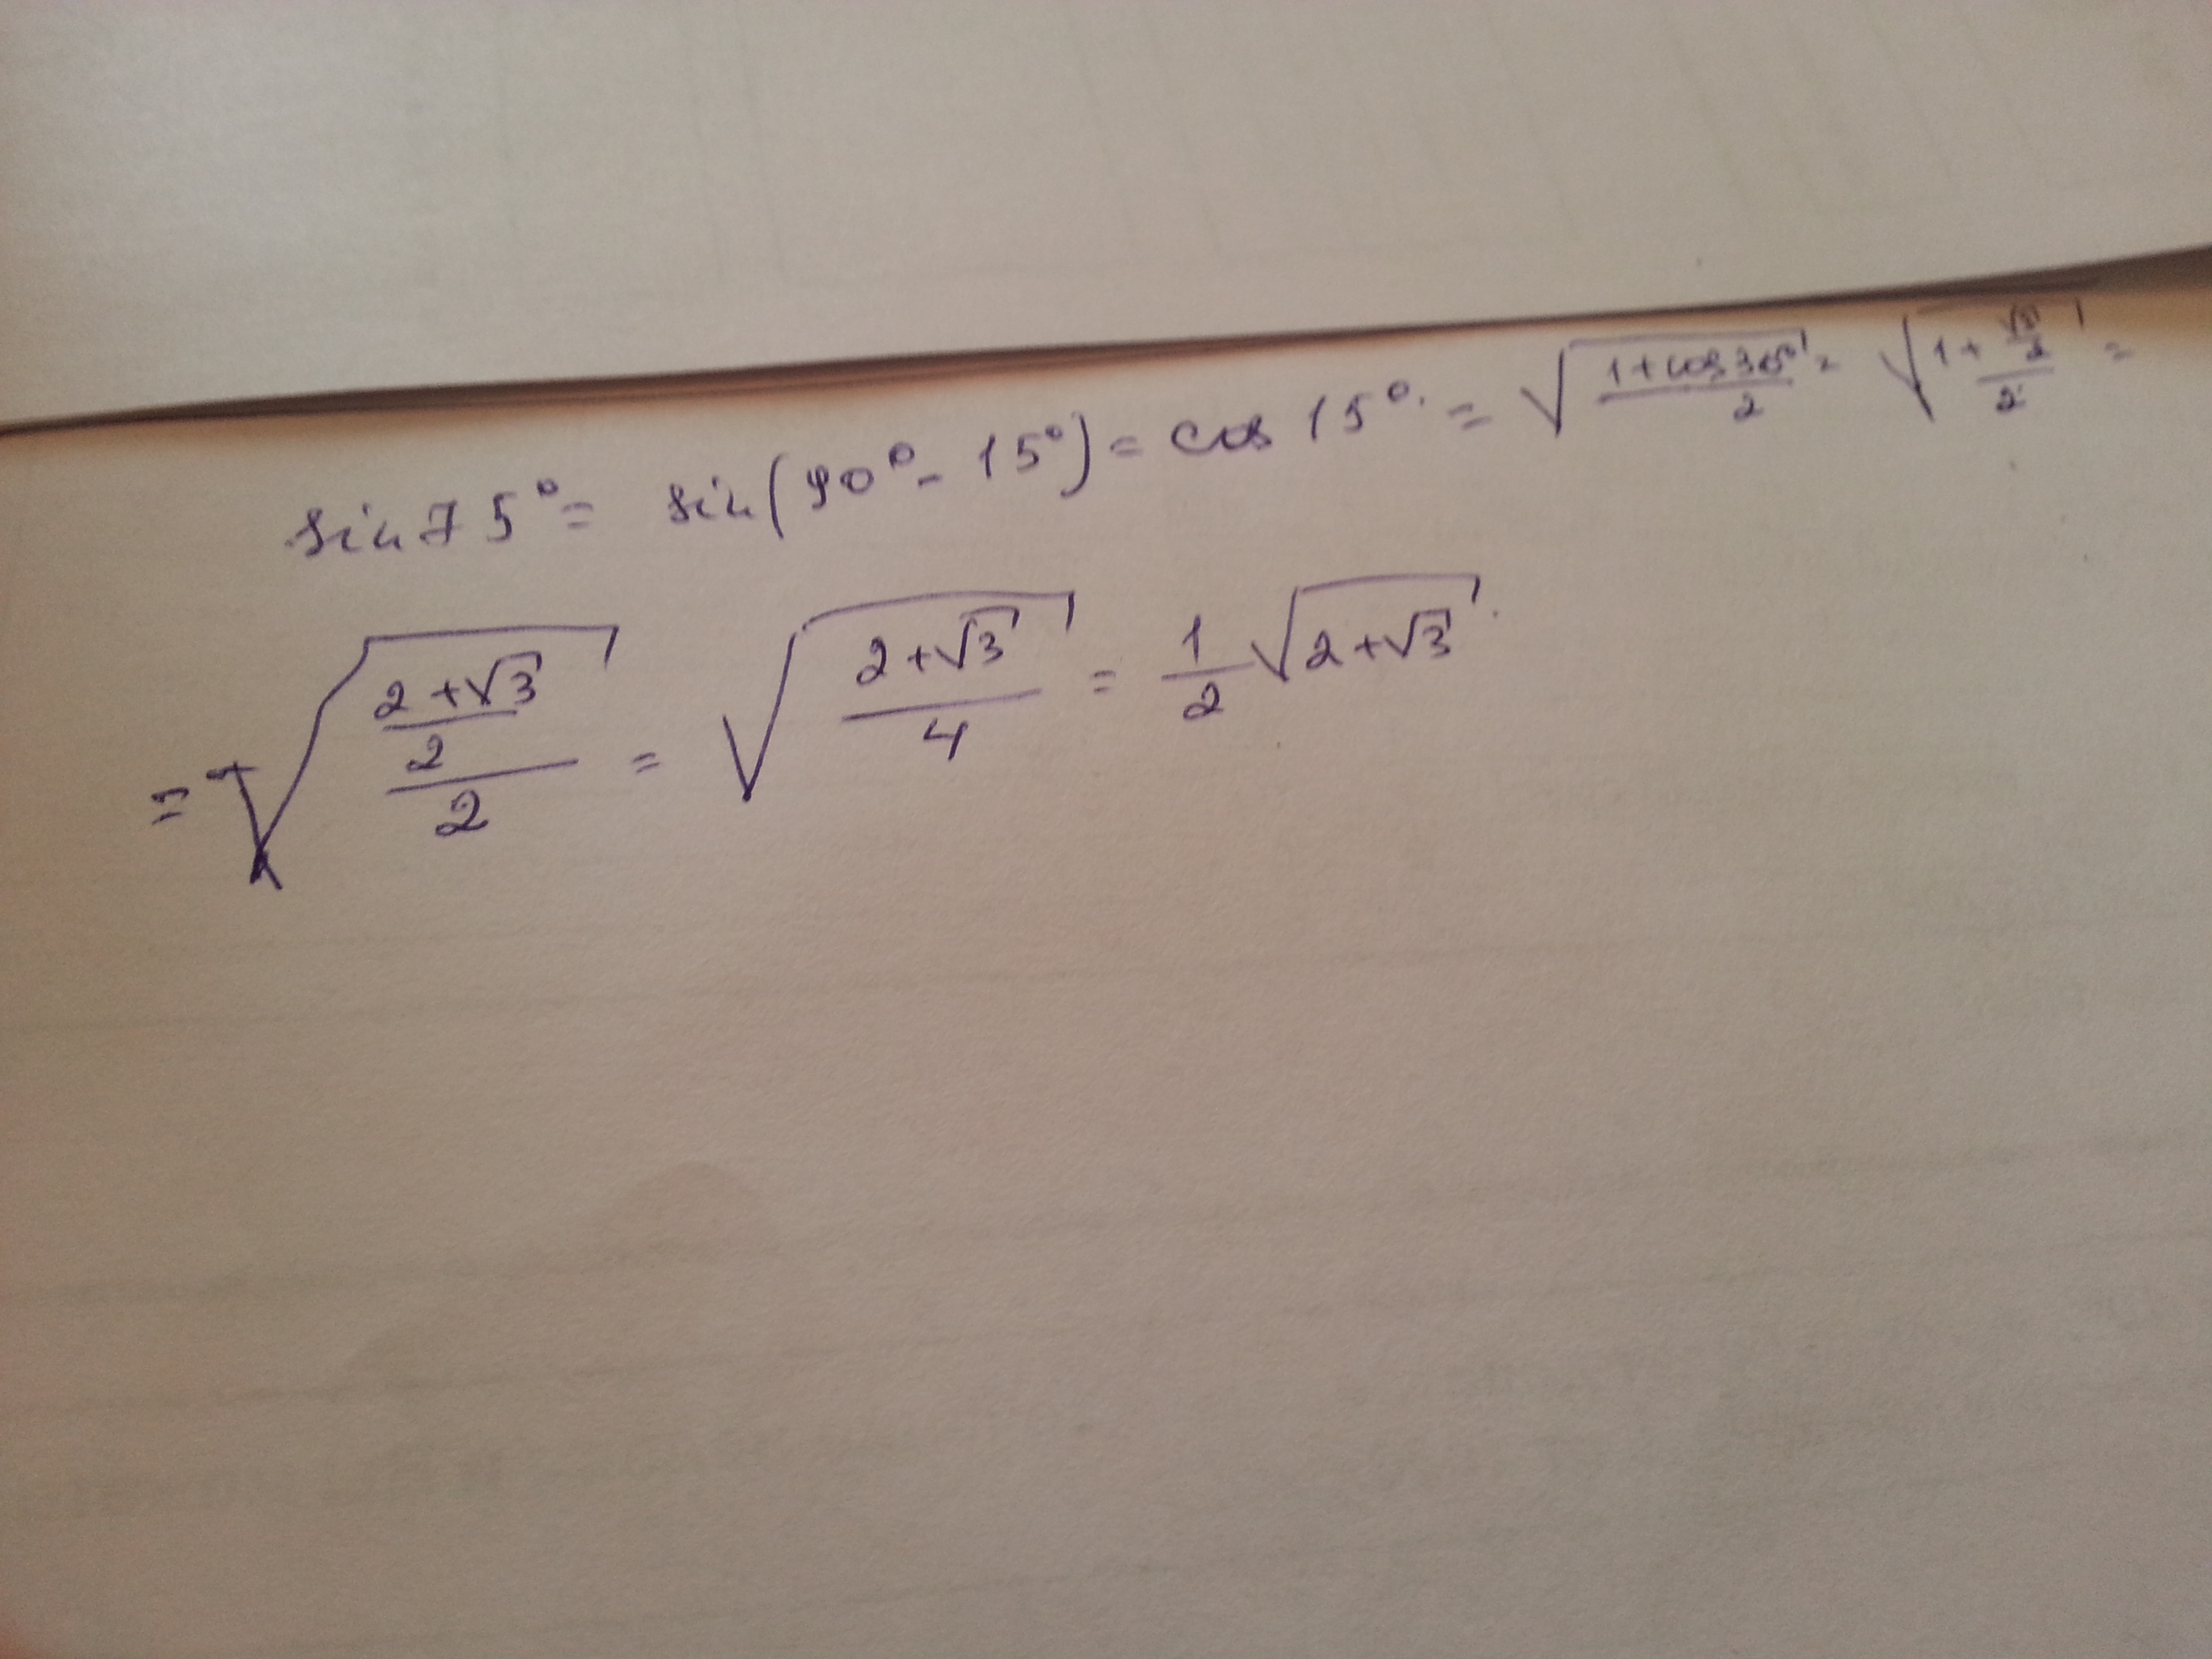 sin75° = sin(90° - 15°) = cos 15° = √((1+cos30°)/2) = √((1+√3/2)/2) =
= √(((2+√3)/2)/2) = √((2+√3)/4) = 1/2 √(2+√3).